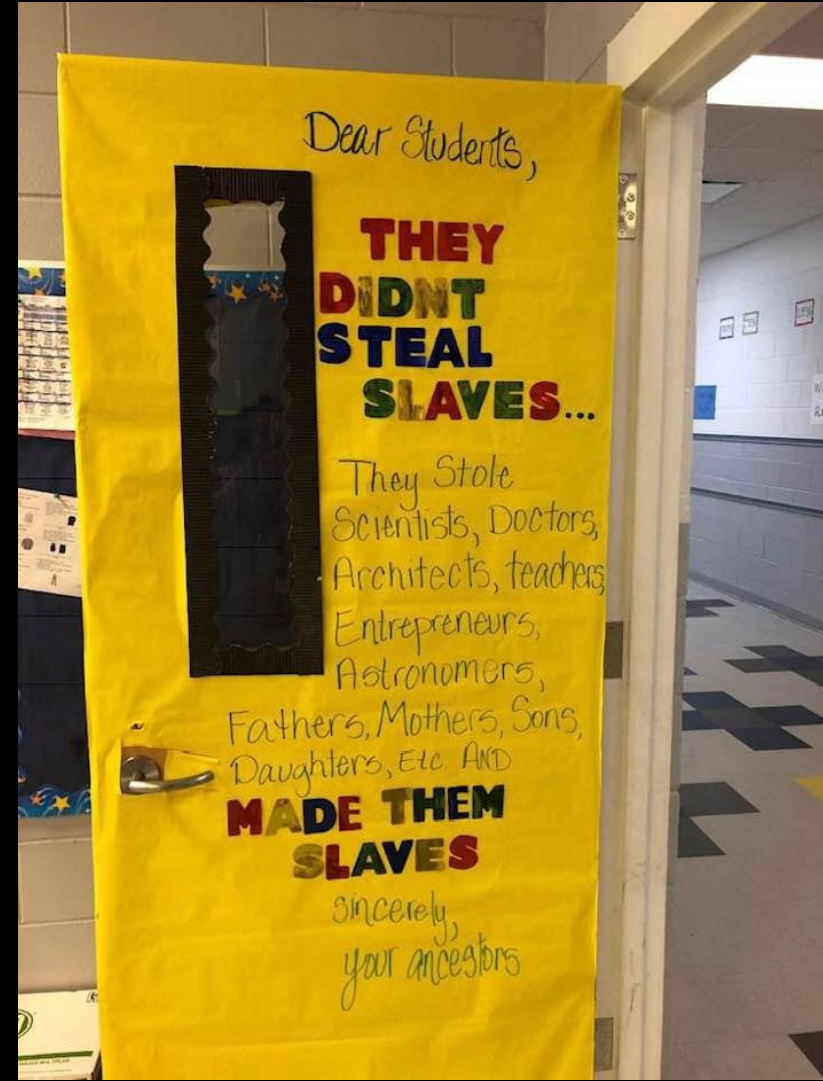 Dear Students,
THEY
DIDNT
STEAL
SLAVES...
They Stole
Scientists, Doctors,
Architects, teachers,
Entrepreneurs,
Astronomers,
Fathers, Mothers, Sons,
Daughters, Etc. AND
MADE THEM
SLAVES
sincerely,
your ancestors